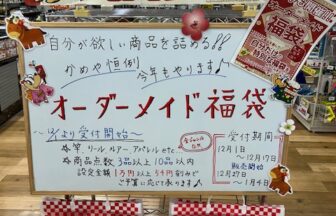 自分が欲しい商品を詰める!!
かめや恒例
今年もやります♪
オーダーメイド福袋
〜12/1より受付開始〜
☆竿、リール、ルアー、アパレル etc.
全ジャンルOK
☆商品点数 3品以上10品以内
設定金額 1万円以上5千円刻みで
ご予算に応じて承ります♪
受付期間
12月1日
〜12月17日
販売開始
12月27日
〜1月4日
福袋